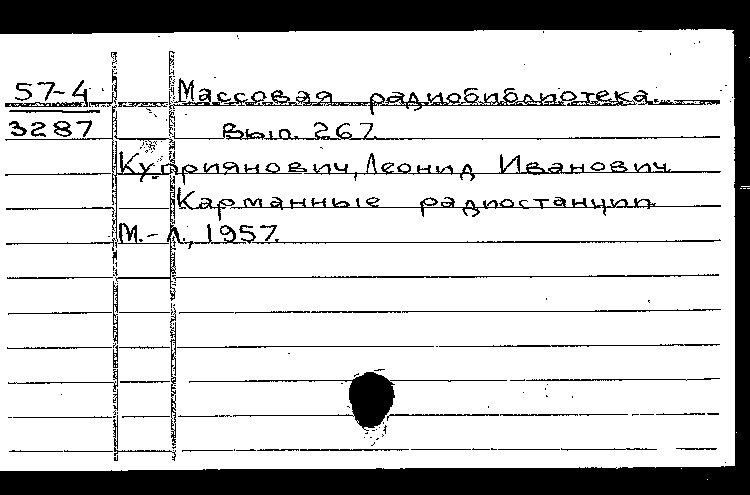 57-4 Массовая радиобиблиотека.
3287 Вып. 267.
Куприянович, Леонид Иванович
Карманные радиостанции.
М.-Л., 1957.